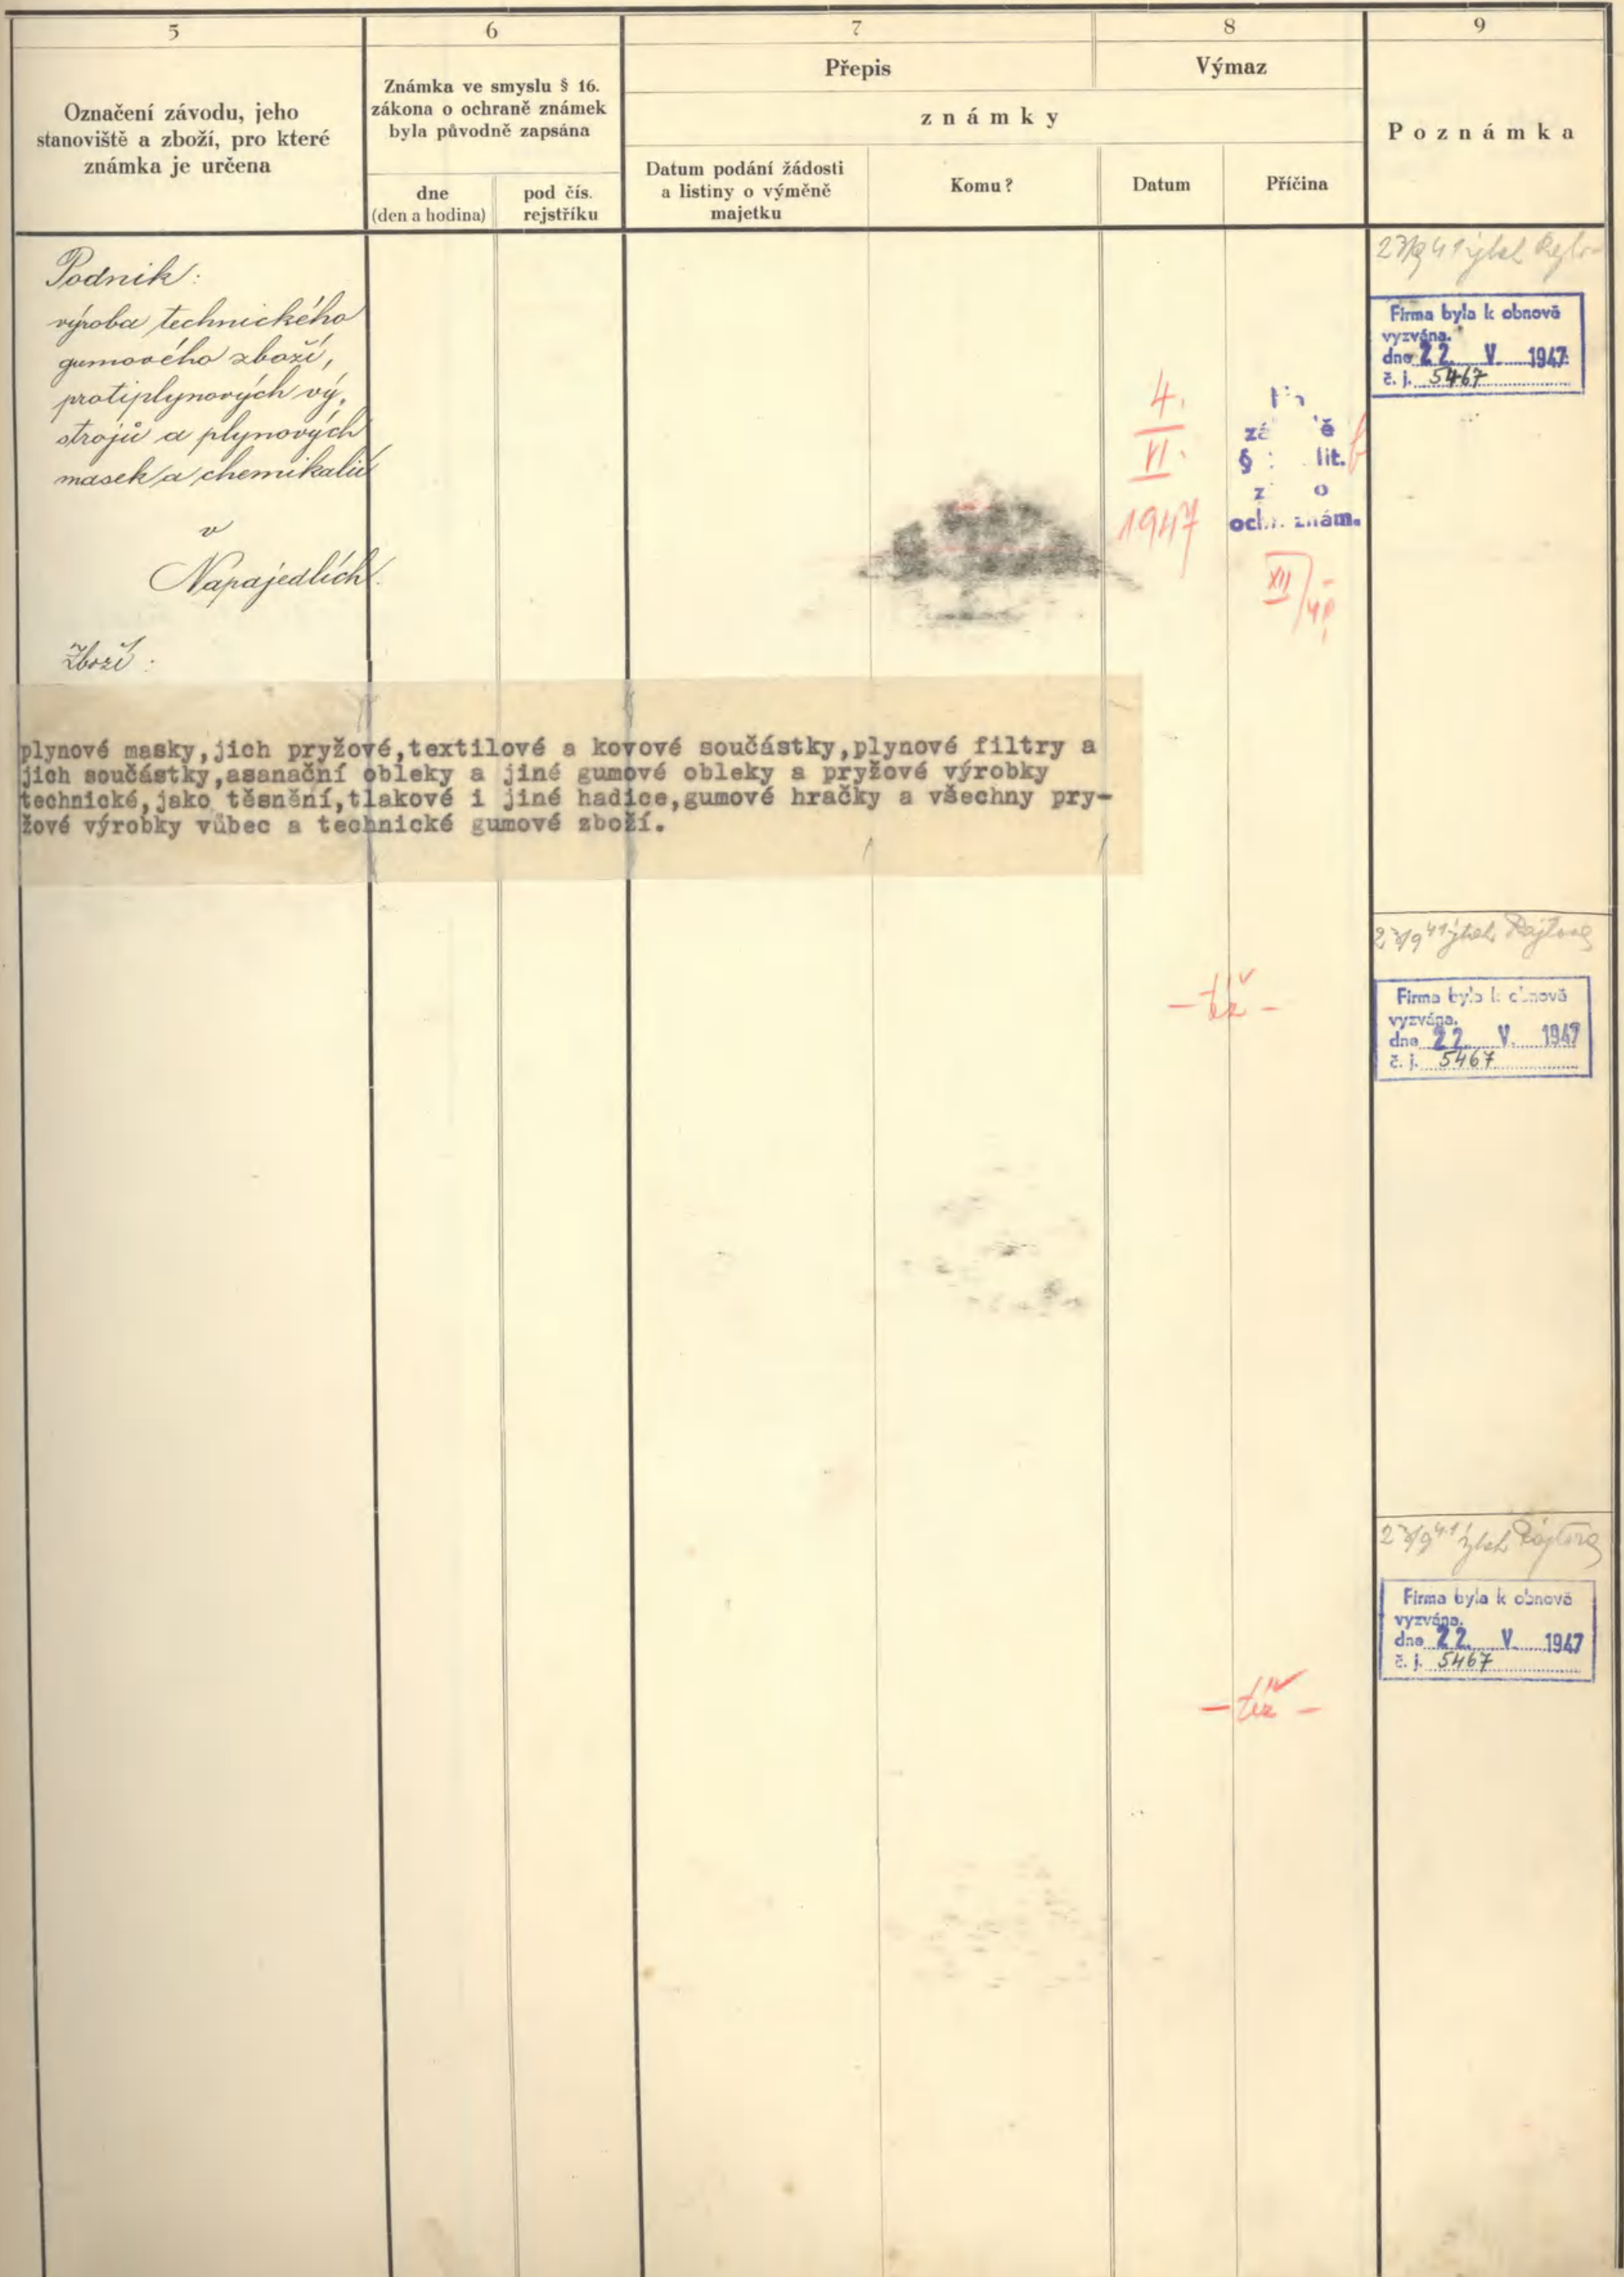 5
6
7
8
9
Označení závodu, jeho
stanoviště a zboží, pro které
známka je určena
Známka ve smyslu § 16.
zákona o ochraně známek
byla původně zapsána
dne
(den a hodina)
pod čís.
rejstříku
Přepis
Výmaz
známky
Datum podání žádosti
a listiny o výměně
majetku
Komu?
Datum
Příčina
Poznámka
Podnik:
výroba technického
gumového zboží,
protiplynových vý-
strojů a plynových
masek a chemikalií
v
Napajedlích.
Zboží:
plynové masky,jich pryžové,textilové a kovové součástky,plynové filtry a
jich součástky,asanační obleky a jiné gumové obleky a pryžové výrobky
technické,jako těsnění,tlakové i jiné hadice,gumové hračky a všechny pry-
žové výrobky vůbec a technické gumové zboží.
4.
VI.
1947
§ lit.
znám.
XII
Firma byla k obnově
vyzvána.
dne 22. V. 1947
č. j. 5467
- též -
23/9 41
Firma byla k obnově
vyzvána.
dne 22. V. 1947
č. j. 5467
23/9 41
Firma byla k obnově
vyzvána.
dne 22. V. 1947
č. j. 5467
- též -